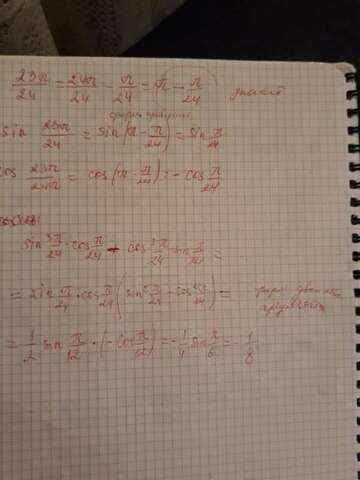 23π/24 = 24π/24 - π/24 = π - π/24 значит
формулы приведения
sin 23π/24 = sin(π - π/24) = sin π/24
cos 23π/24 = cos(π - π/24) = -cos π/24
sin³ π/24 · cos π/24 - cos³ π/24 · sin π/24 =
= sin π/24 · cos π/24 (sin² π/24 - cos² π/24) =
= 1/2 sin π/12 · (-cos π/12) = -1/4 sin π/6 = -1/8